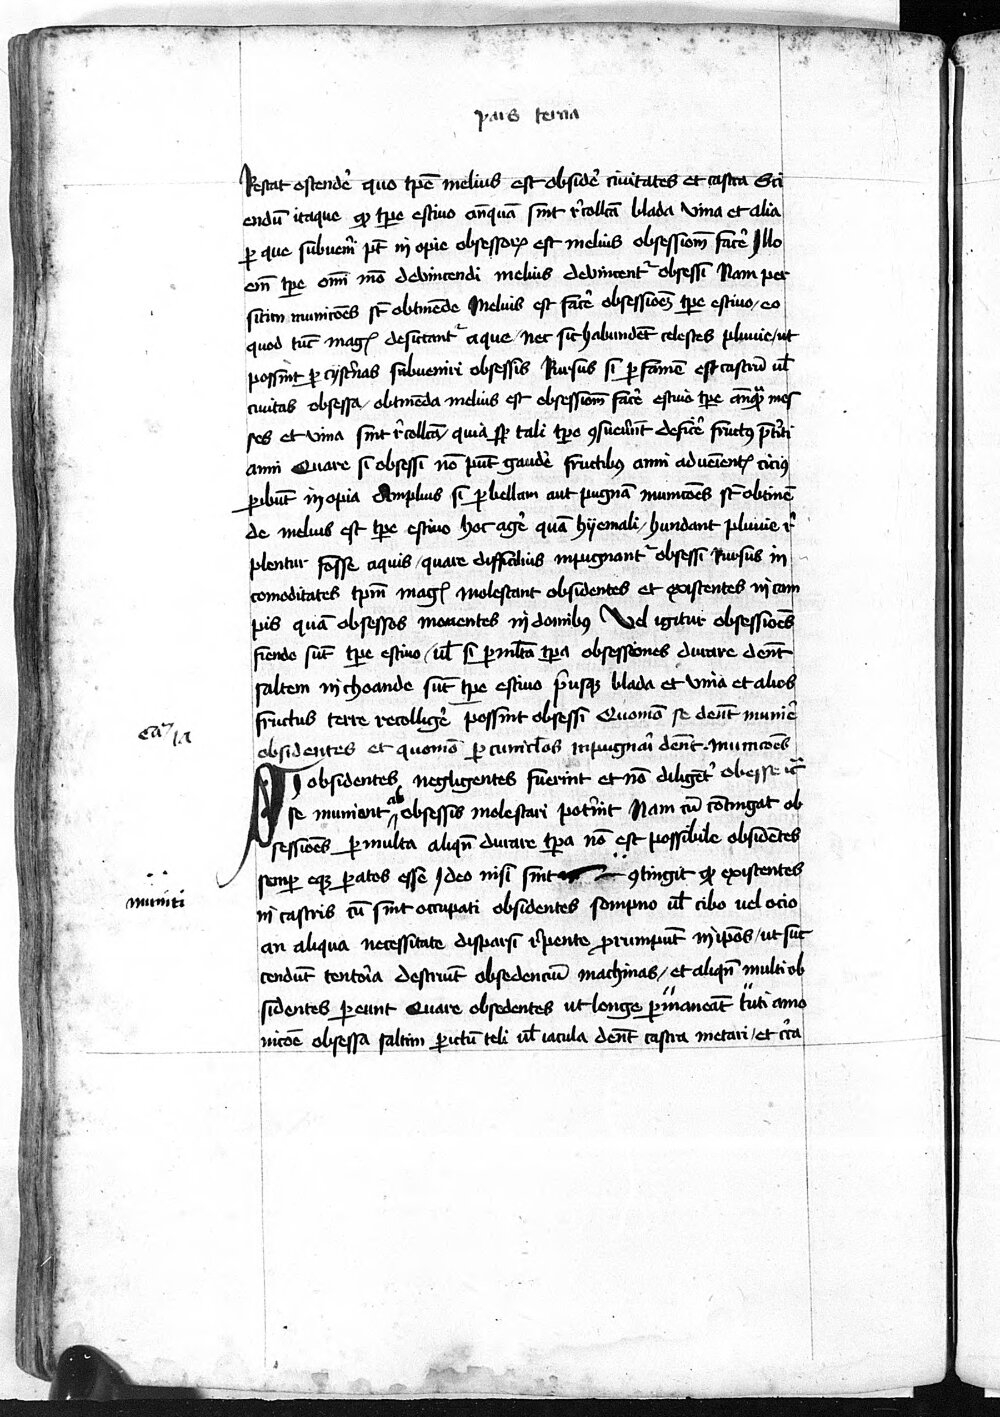 pars tercia
Restat ostendē quo tp̄e melius est obsidē ciuitates et castra Sci
endū itaque qͥ tp̄e estiuo an̄quā sint r̄collcā blada vina et alia
ꝑ que subuenir̄ pt̄ inopie obsessoꝝ est melius obsessionē facē Illo
em̄ tp̄e om̄i mō deuincendi melius deuincentᷣ obsessi Nam per
sitim municōēs st̄ obtinēde Melius est facē obsessionēs tp̄e estiuo / eo
quod tūc magꝭ desiccantᷣ aque / nec sic habundēt celestes pluuie / ut
possint ꝑ cysternas subueniri obsessis Rursus si ꝑ famē est castrū ul̄
ciuitas obsessa / obtinēda melius est obsessionē facē estiuo tp̄e an̄quā mes
ses et vina sint r̄collcā / quia sꝑ tali tp̄e ꝯsueuerūt deficē fructꝰ p̄teriti
anni Quare si obsessi nō pn̄t gaudē fructibꝰ anni aduenientꝭ ciciꝰ
ꝑibūt inopia Amplius si ꝑ bellum aut pugnā municōēs st̄ obtinē
de melius est tp̄e estiuo hoc agē quā hyemali / hundant pluuie r̄
plentur fosse aquis / quare difficilius inpugnantᷣ obsessi Rursus in
comoditates tpm̄ magꝭ molestant obsidentes et existentes in cam
pis quā obsessos manentes in domibꝰ Vel igitur obsessiones
fiende sūt tp̄e estiuo / ul̄ si ꝑ multa tpa obsessiones durare dēnt
saltem inchoande sūt tp̄e estiuo priusꝗ blada et vina et alios
fructus terre recolligē possint obsessi Quomō se dēnt munirē
obsidentes et quomō ꝑ cuniclos inpugnari dēnt municōēs
Si obsidentes negligentes fuerint et nō diligent̄
se munient ab obsessis molestari poterint Nam cū cōtingat ob
sessiones ꝑ multa aliqn̄ durare tpa nō est possibile obsidentes
semꝑ eqꝫ ꝑatos esse Ideo nisi sint ꝯtingit qͥ existentes
in castris cū sint occupati obsidentes sompno ul̄ cibo uel ocio
an aliqua necessitate disparsi r̄pente prorumpūt in ipōs / ut suc
cendūt tentoria destruūt obsedenciū machinas / et aliqn̄ multi ob
sidentes ꝑeunt Quare obsedentes ut longe ꝑmaneāt tuti a mo
nicōe obsessa saltim ꝑ ictū teli ul̄ iacula dēnt castra metari / et cͥca
muniti